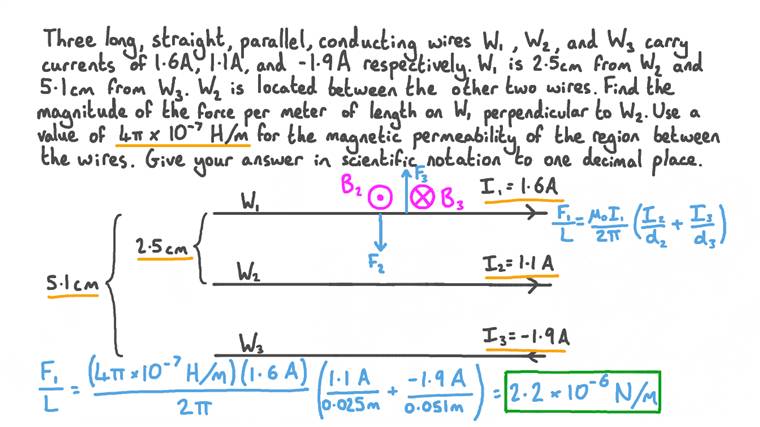 Three long, straight, parallel, conducting wires W₁, W₂, and W₃ carry
currents of 1.6A, 1.1A, and -1.9A respectively. W₁ is 2.5cm from W₂ and
5.1cm from W₃. W₂ is located between the other two wires. Find the
magnitude of the force per meter of length on W₁ perpendicular to W₂. Use a
value of 4π × 10⁻⁷ H/m for the magnetic permeability of the region between
the wires. Give your answer in scientific notation to one decimal place.
F₃
W₁ B₂ B₃ I₁ = 1.6A
F₁/L = μ₀I₁/2π (I₂/d₂ + I₃/d₃)
2.5cm
F₂
5.1cm W₂ I₂ = 1.1A
W₃ I₃ = -1.9A
F₁/L = (4π × 10⁻⁷ H/m)(1.6A)/2π (1.1A/0.025m + -1.9A/0.051m) = 2.2 × 10⁻⁶ N/m